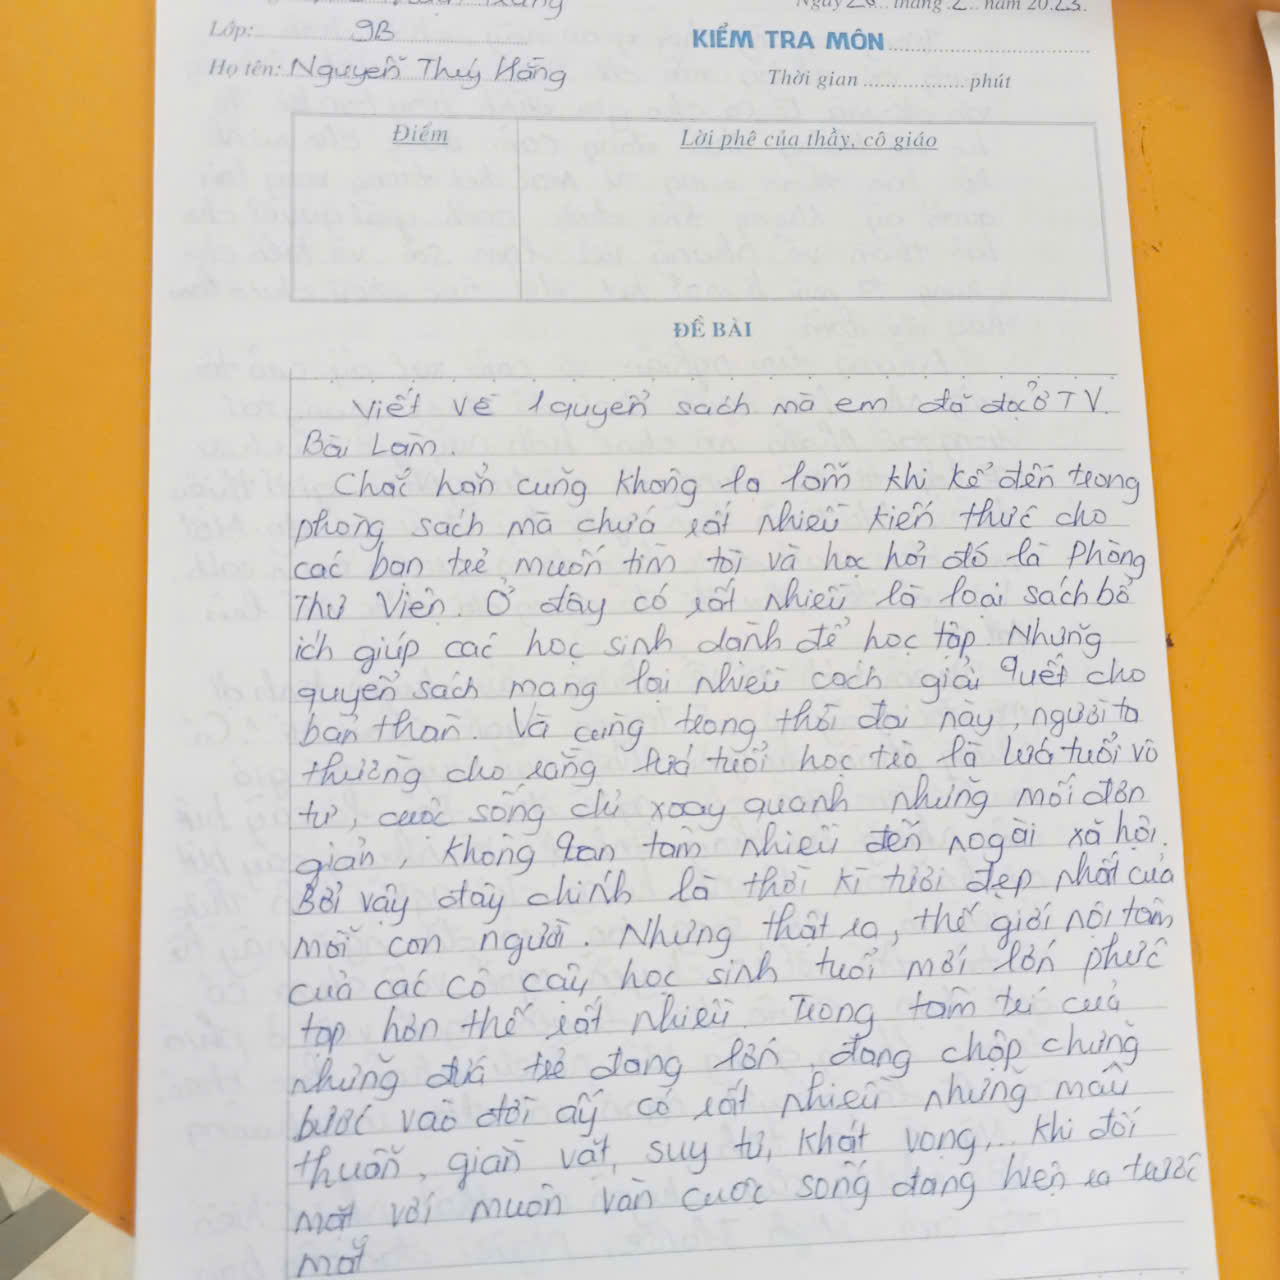 Ngày 20 tháng 2 năm 2023.
Lớp: 9B
KIỂM TRA MÔN
Họ tên: Nguyễn Thuý Hằng
Thời gian phút
Điểm
Lời phê của thầy, cô giáo
ĐỀ BÀI
Viết về 1 quyển sách mà em đã đọc ở TV.
Bài Làm.
Chắc hẳn cũng không la lẫm khi kể đến trong
phòng sách mà chứa rất nhiều kiến thức cho
các bạn trẻ muốn tìm tòi và học hỏi đó là Phòng
Thư Viện. Ở đây có rất nhiều là loại sách bổ
ích giúp các học sinh dành để học tập. Những
quyển sách mang lại nhiều cách giải quết cho
bản thân. Và cũng trong thời đại này, người ta
thường cho rằng lứa tuổi học trò là lứa tuổi vô
tư, cuộc sống chỉ xoay quanh những mối đơn
giản, không quan tâm nhiều đến ngoài xã hội.
Bởi vậy đây chính là thời kì tươi đẹp nhất của
mỗi con người. Nhưng thật ra, thế giới nội tâm
của các cô cậu học sinh tuổi mới lớn phức
tạp hơn thế rất nhiều. Trong tâm trí của
những đứa trẻ đang lớn, đang chập chững
bước vào đời ấy có rất nhiều những mâu
thuẫn, giằn vặt, suy tư, khát vọng,.. khi đối
mặt với muôn vàn cuộc sống đang hiện ra trước
mắt